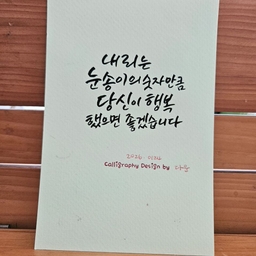 내리는
눈송이의 숫자만큼
당신이 행복
했으면 좋겠습니다
Calligraphy Design by